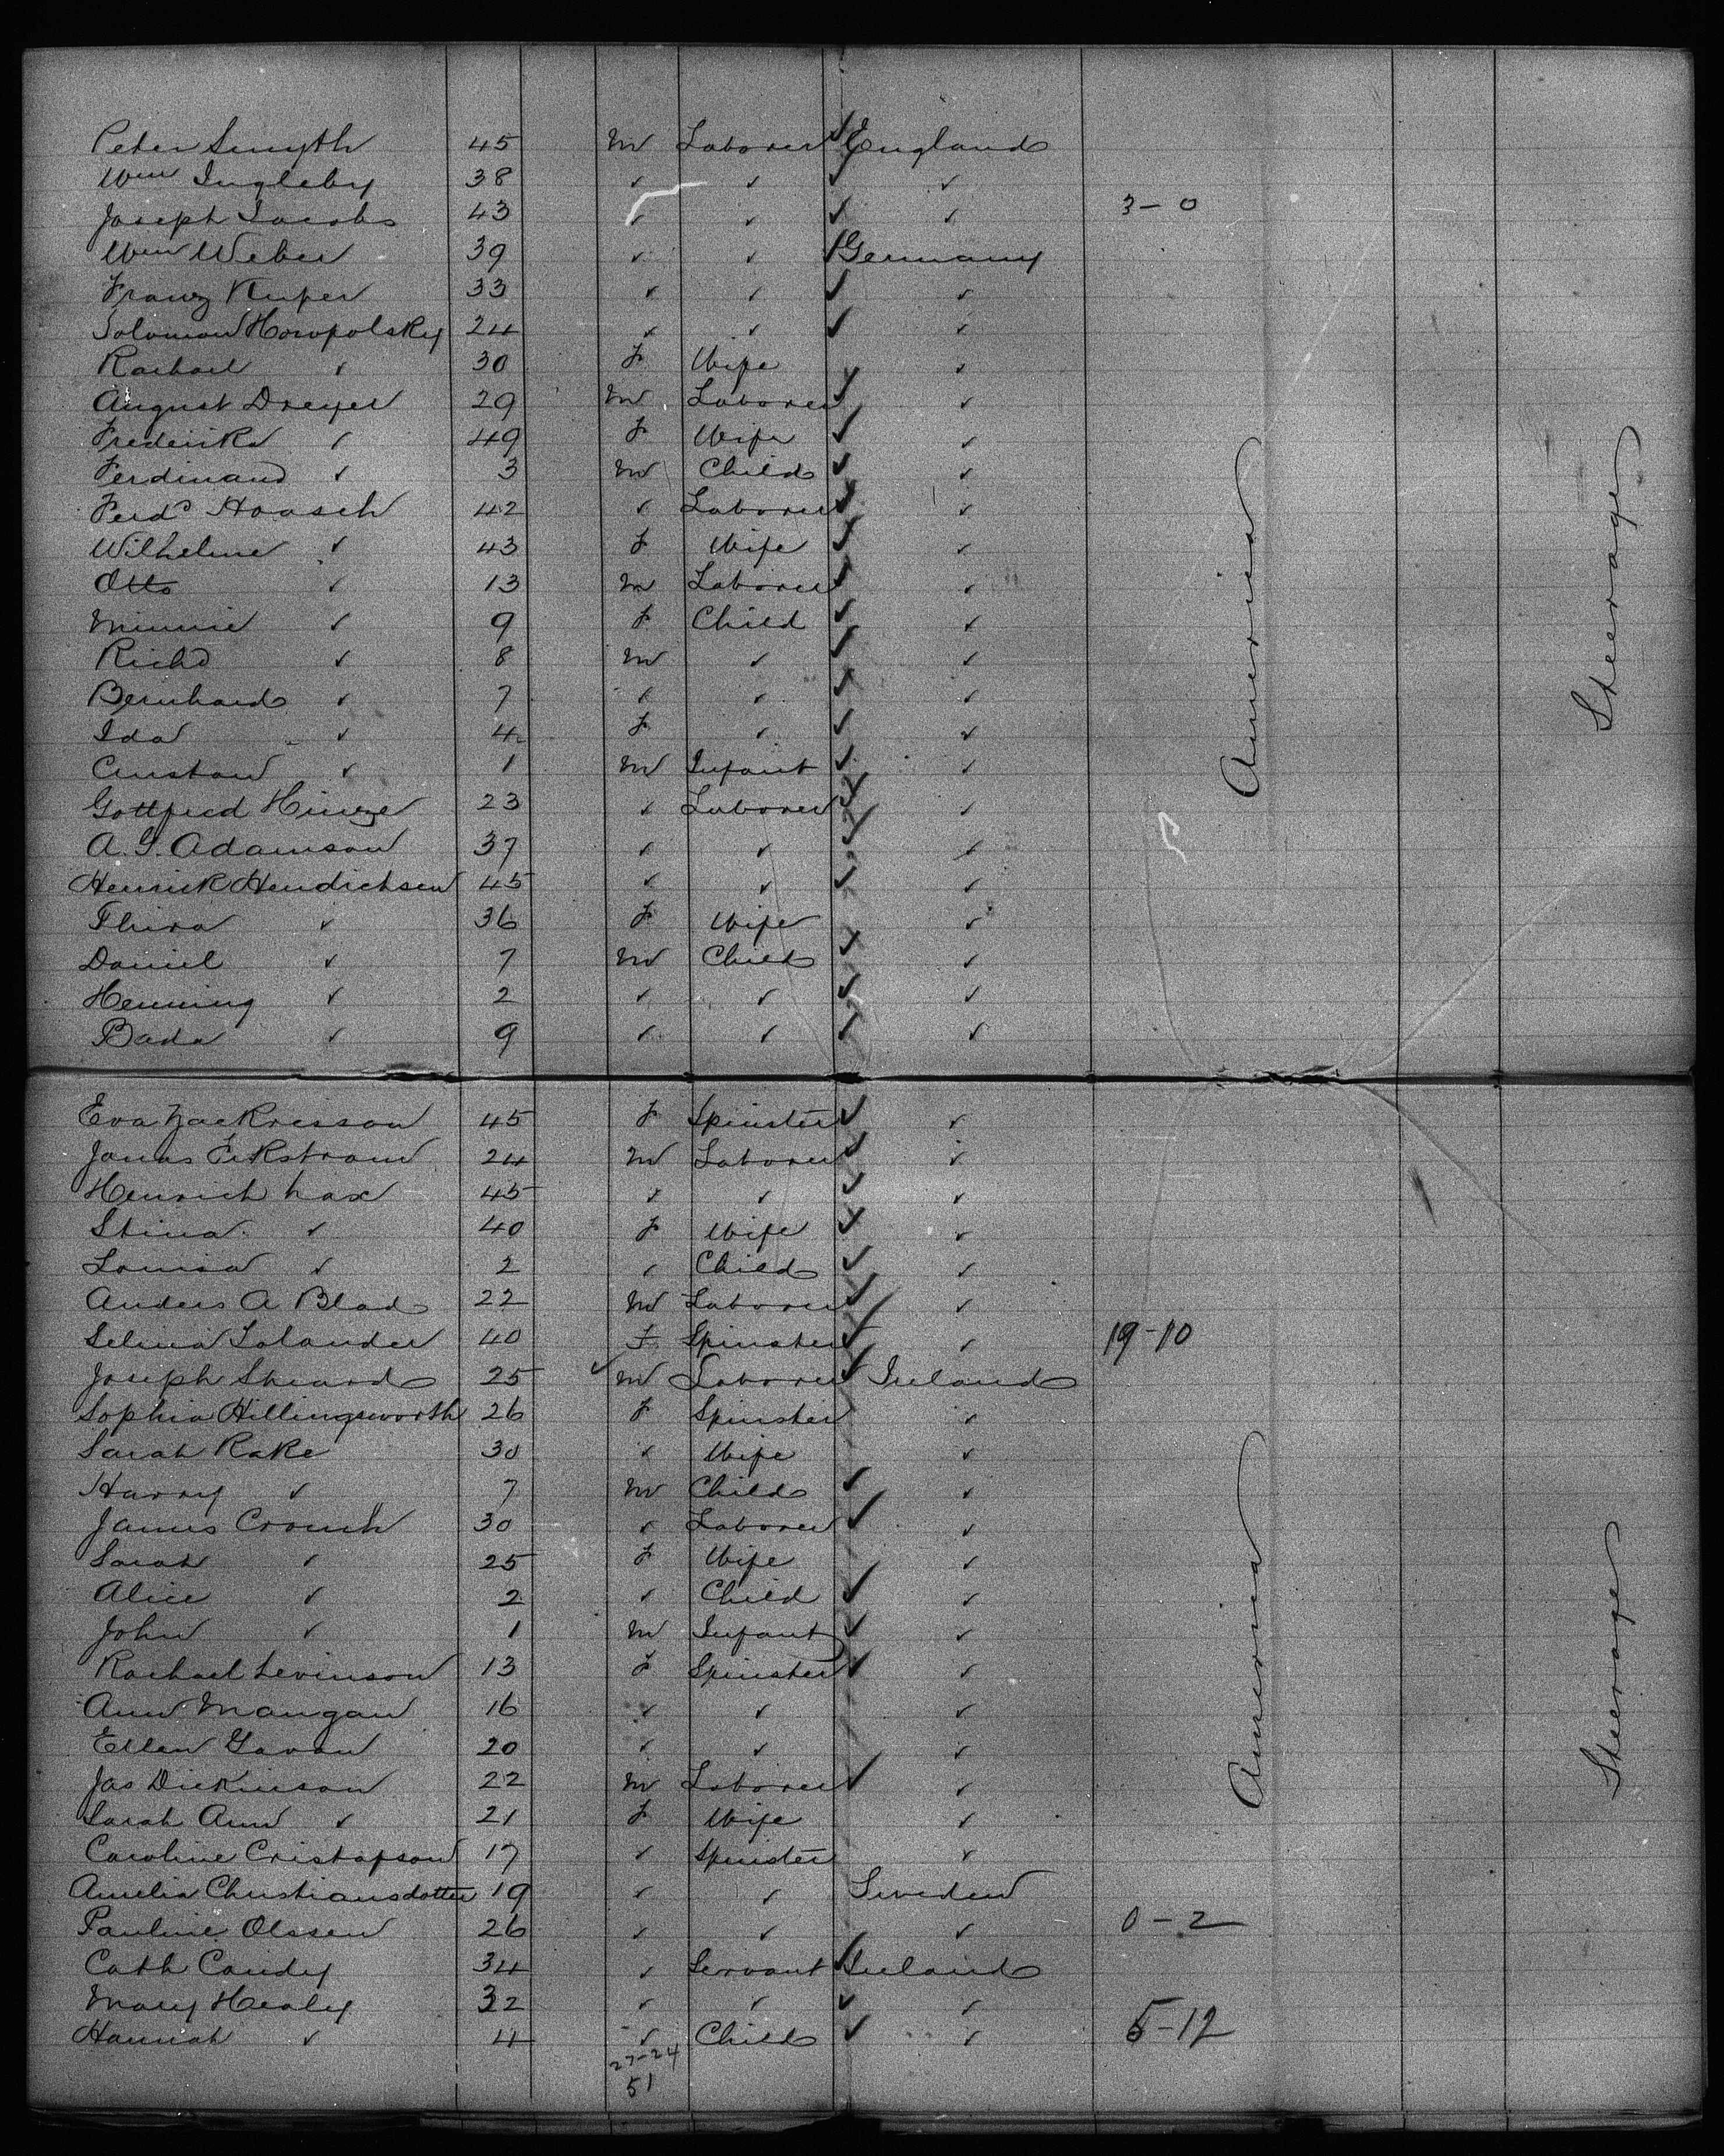 Peter Smyth 45 m Laborer England
Wm Ingleby 38 ✓ ✓ ✓
Joseph Jacobs 43 ✓ ✓ ✓ 3-0
Wm Weber 39 ✓ ✓ Germany
Franz Kuper 33 ✓ ✓ ✓
Solomon Horopolsky 24 ✓ ✓ ✓
Rachael ✓ 30 f Wife ✓
August Dreyer 29 m Laborer ✓
Frederika ✓ 49 f Wife ✓
Ferdinand ✓ 3 m Child ✓
Ferd Haasch 42 ✓ Laborer ✓
Wilhelme ✓ 43 f Wife ✓
Otto ✓ 13 m Laborer ✓
Minnie ✓ 9 f Child ✓
Richd ✓ 8 m ✓ ✓
Bernhard ✓ 7 ✓ ✓ ✓
Ida ✓ 4 f ✓ ✓
✓ 1 m Infant ✓
Gottfried Hinze 23 ✓ Laborer ✓
A. G. Adamson 37 ✓ ✓ ✓
Henrick Hendichsen 45 ✓ ✓ ✓
Thira ✓ 36 f Wife ✓
Daniel ✓ 7 m Child ✓
Henning ✓ 2 ✓ ✓ ✓
Bada ✓ 9 ✓ ✓ ✓
America
Steerage
Eva Zackrisson 45 f Spinster ✓
Jonas Eckstrom 24 m Laborer ✓
Henrich Lax 45 ✓ ✓ ✓
Stina ✓ 40 f Wife ✓
Louisa ✓ 2 ✓ Child ✓
Anders A Blad 22 m Laborer ✓
Selina Solander 40 f Spinster ✓ 19-10
Joseph Sheard 25 m Laborer Ireland
Sophia Hillingsworth 26 f Spinster ✓
Sarah Rake 30 ✓ Wife ✓
Harry ✓ 7 m Child ✓
James Crouch 30 ✓ Laborer ✓
Sarah ✓ 25 f Wife ✓
Alice ✓ 2 ✓ Child ✓
John ✓ 1 m Infant ✓
Rachael Levinson 13 f Spinster ✓
Ann Mangan 16 ✓ ✓ ✓
Ellen Gavan 20 ✓ ✓ ✓
Jas Dickinson 22 m Laborer ✓
Sarah Ann ✓ 21 f Wife ✓
Caroline Cristopson 17 ✓ Spinster ✓
Amelia Christiansdotter 19 ✓ ✓ Sweden
Pauline Olssen 26 ✓ ✓ ✓ 0-2
Cath Candy 34 ✓ Servant Ireland
Mary Healy 32 ✓ ✓ ✓
Hannah ✓ 4 ✓ Child ✓ 5-12
27-24
51
America
Steerage